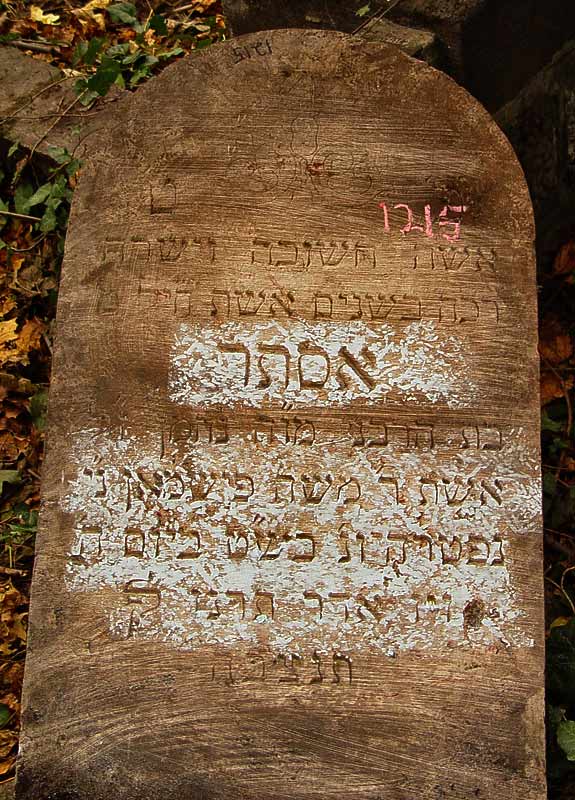 פ ט
1215
אשה חשובה וישרה
רכה בשנים אשת חיל
אסתר
בת הרבני מו"ה נחמן
אשת ר' משה פישמאן נ"י
נפטרה ונ' בש"ט ביום ה'
אדר תרט לק
תנצבה